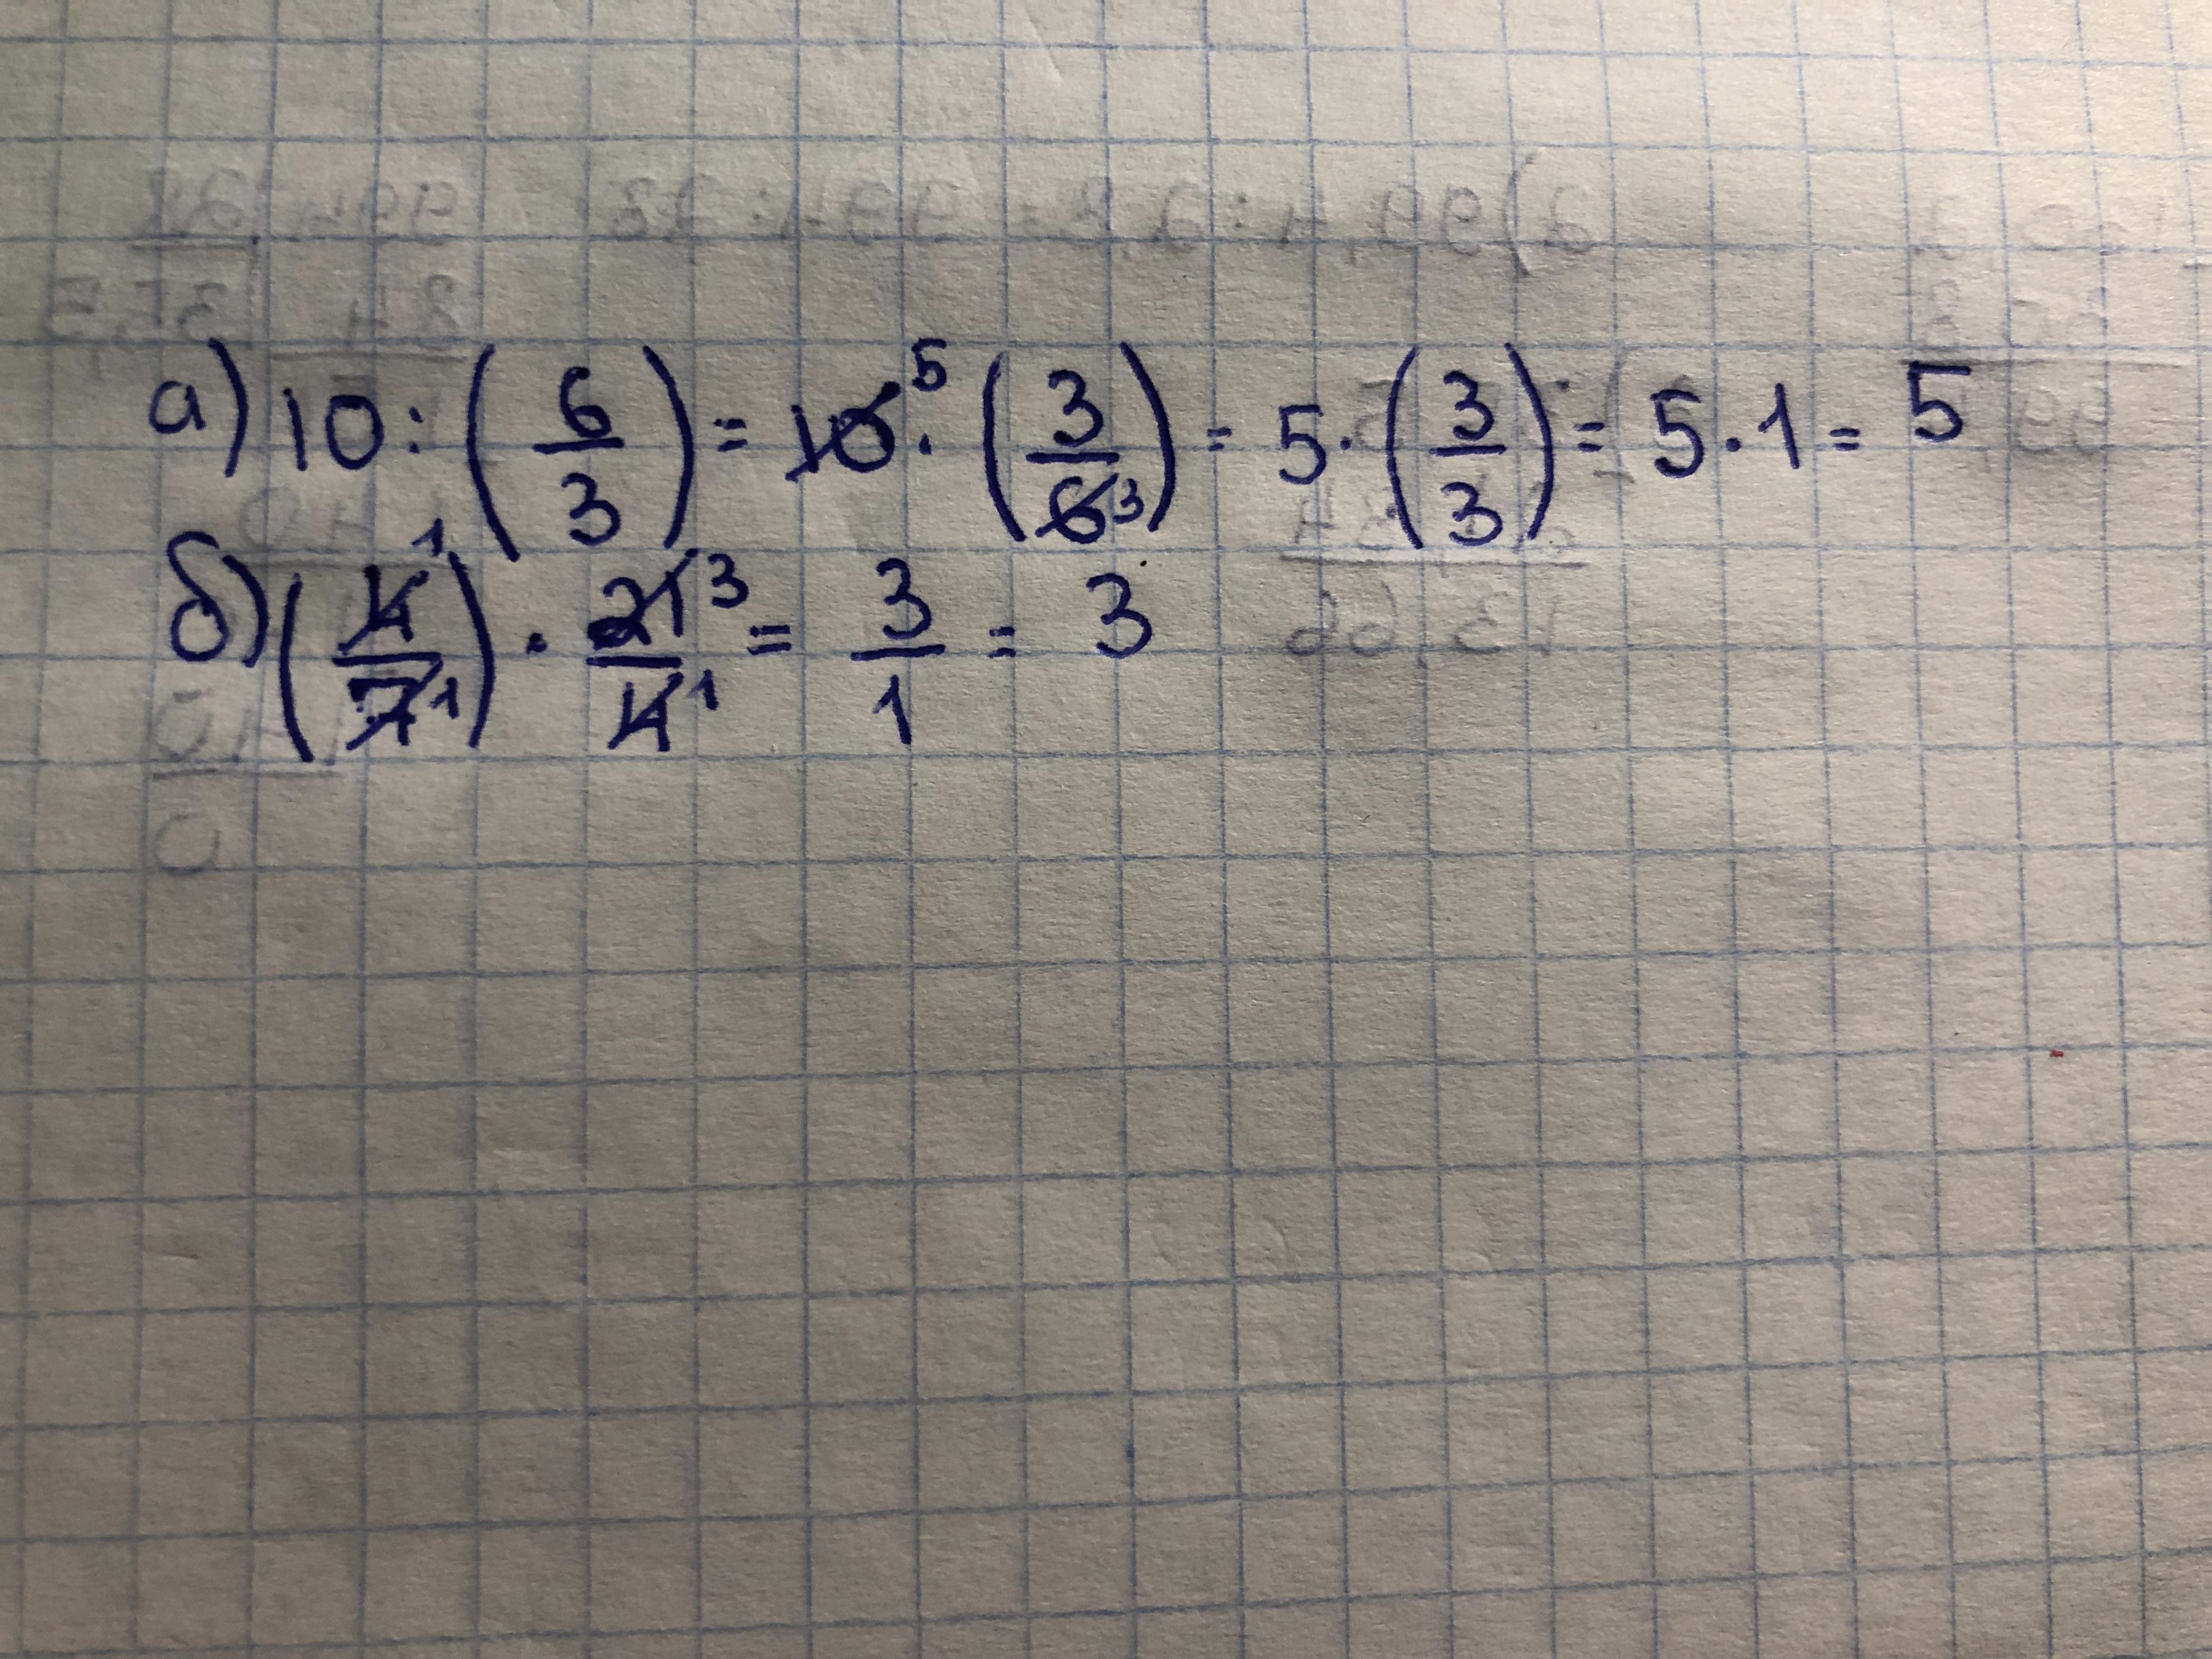 а) 10 : (6/3) = 10⁵ · (3/6³) = 5 · (3/3) = 5 · 1 = 5
б) (4¹/7¹) · 21³/4¹ = 3/1 = 3